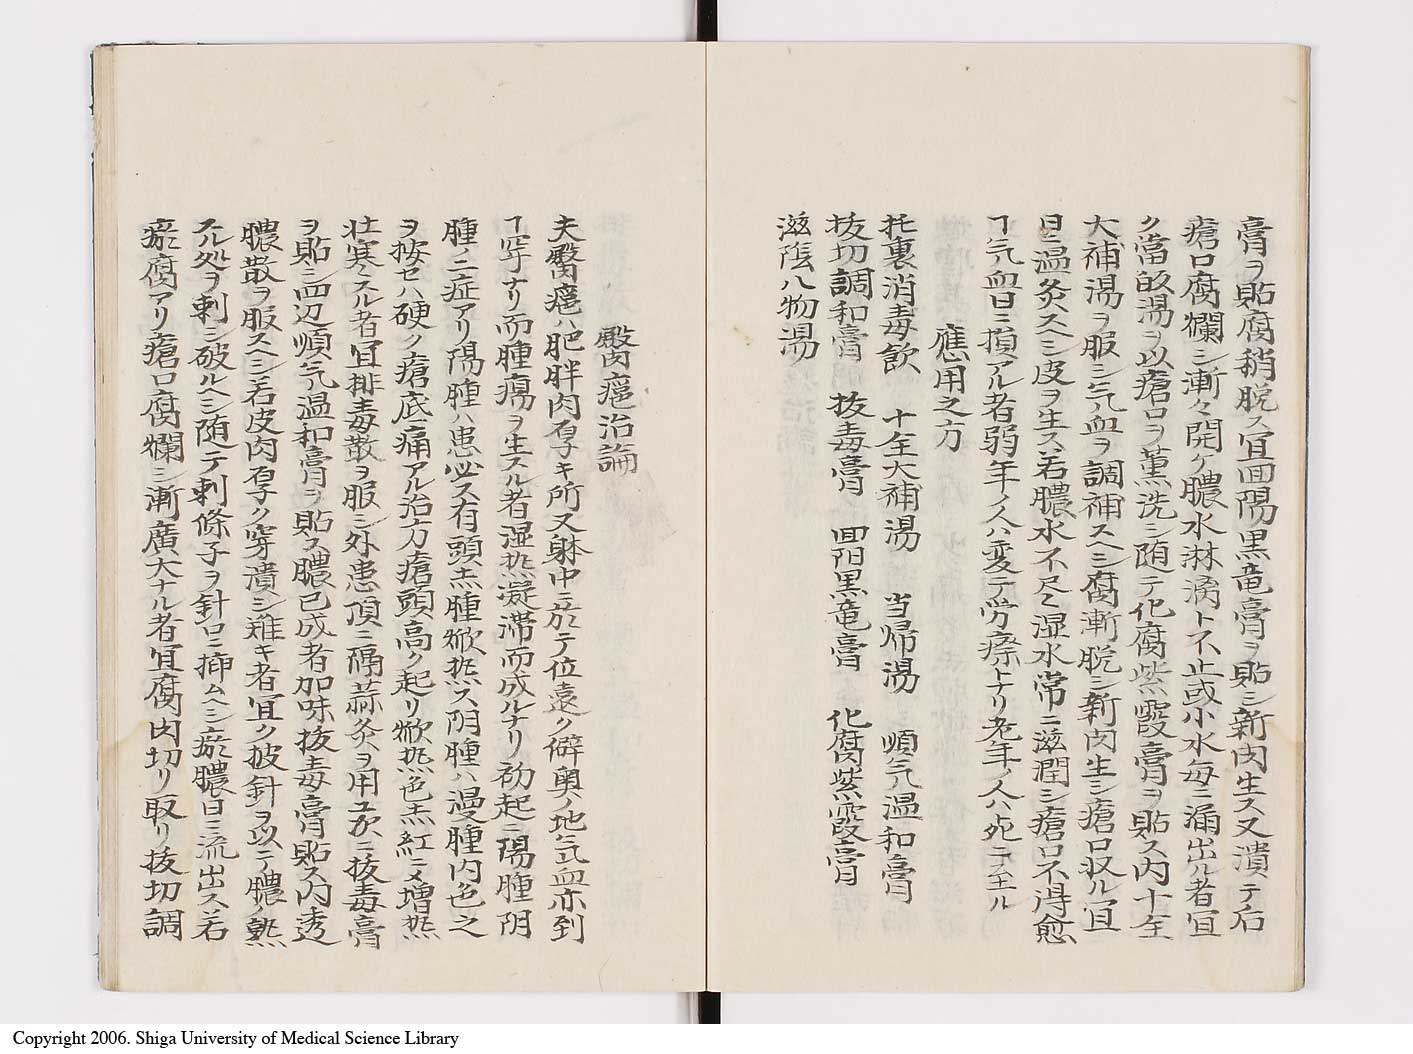 膏ヲ貼腐稍脱ス宜囬陽黒竜膏ヲ貼シ新肉生ス又潰テ后
瘡口腐爛シ漸々開ケ膿水淋漓ト不止或小水毎ニ涌出ル者宜
ク當皈湯ヲ以瘡口ヲ薫洗シ随テ化腐紫霞膏ヲ貼ス内十全
大補湯ヲ服シ气血ヲ調補スヘシ腐漸脱シ新肉生シ瘡口収ル宜
日ニ温灸スヘシ皮ヲ生ス若膿水不尽湿水常ニ滋潤シ瘡口不得愈
ヿ气血日ニ損アル者弱年ノ人ハ変テ労瘵トナリ老年ノ人ハ死ニ至ル
應用之方
托裏消毒飲 十全大補湯 当帰湯 順气温和膏
抜切調和膏 抜毒膏 囬阳黒竜膏 化腐紫霞膏
滋陰八物湯
臀癰治論
夫臀癰ハ肥胖肉厚キ所又躰中ニ於テ位遠ク僻奥ノ地気血亦到
ヿ罕ナリ而腫瘍ヲ生スル者湿热凝滞而成ルナリ初起ニ陽腫阴
腫ノ二症アリ陽腫ハ患必ス有頭赤腫焮热ス阴腫ハ漫腫内色之
ヲ按セハ硬ク瘡底痛アル治方瘡頭高ク起リ焮热色赤紅ニメ増热
壮寒スル者宜排毒散ヲ服シ外患頂ニ隔蒜灸ヲ用ユ次ニ抜毒膏
ヲ貼シ四辺順气温和膏ヲ貼ス膿已成者加味抜毒膏貼ス内透
膿散ヲ服スヘシ若皮肉厚ク穿潰シ難キ者宜ク披針ヲ以テ膿ノ熟
スル処ヲ刺シ破ルヘシ随テ刺條子ヲ針口ニ挿ムヘシ瘀膿日ニ流出ス若
瘀腐アリ瘡口腐爛シ漸廣大ナル者宜腐肉切リ取リ抜切調
Copyright 2006. Shiga University of Medical Science Library